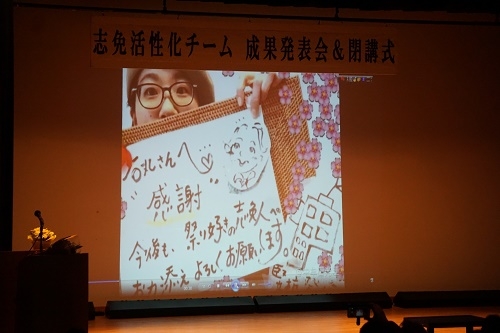 志免活性化チーム 成果発表会&閉講式
さんへ
感謝
今後も、祭り好きの志免人で
お力添えよろしくお願いします。